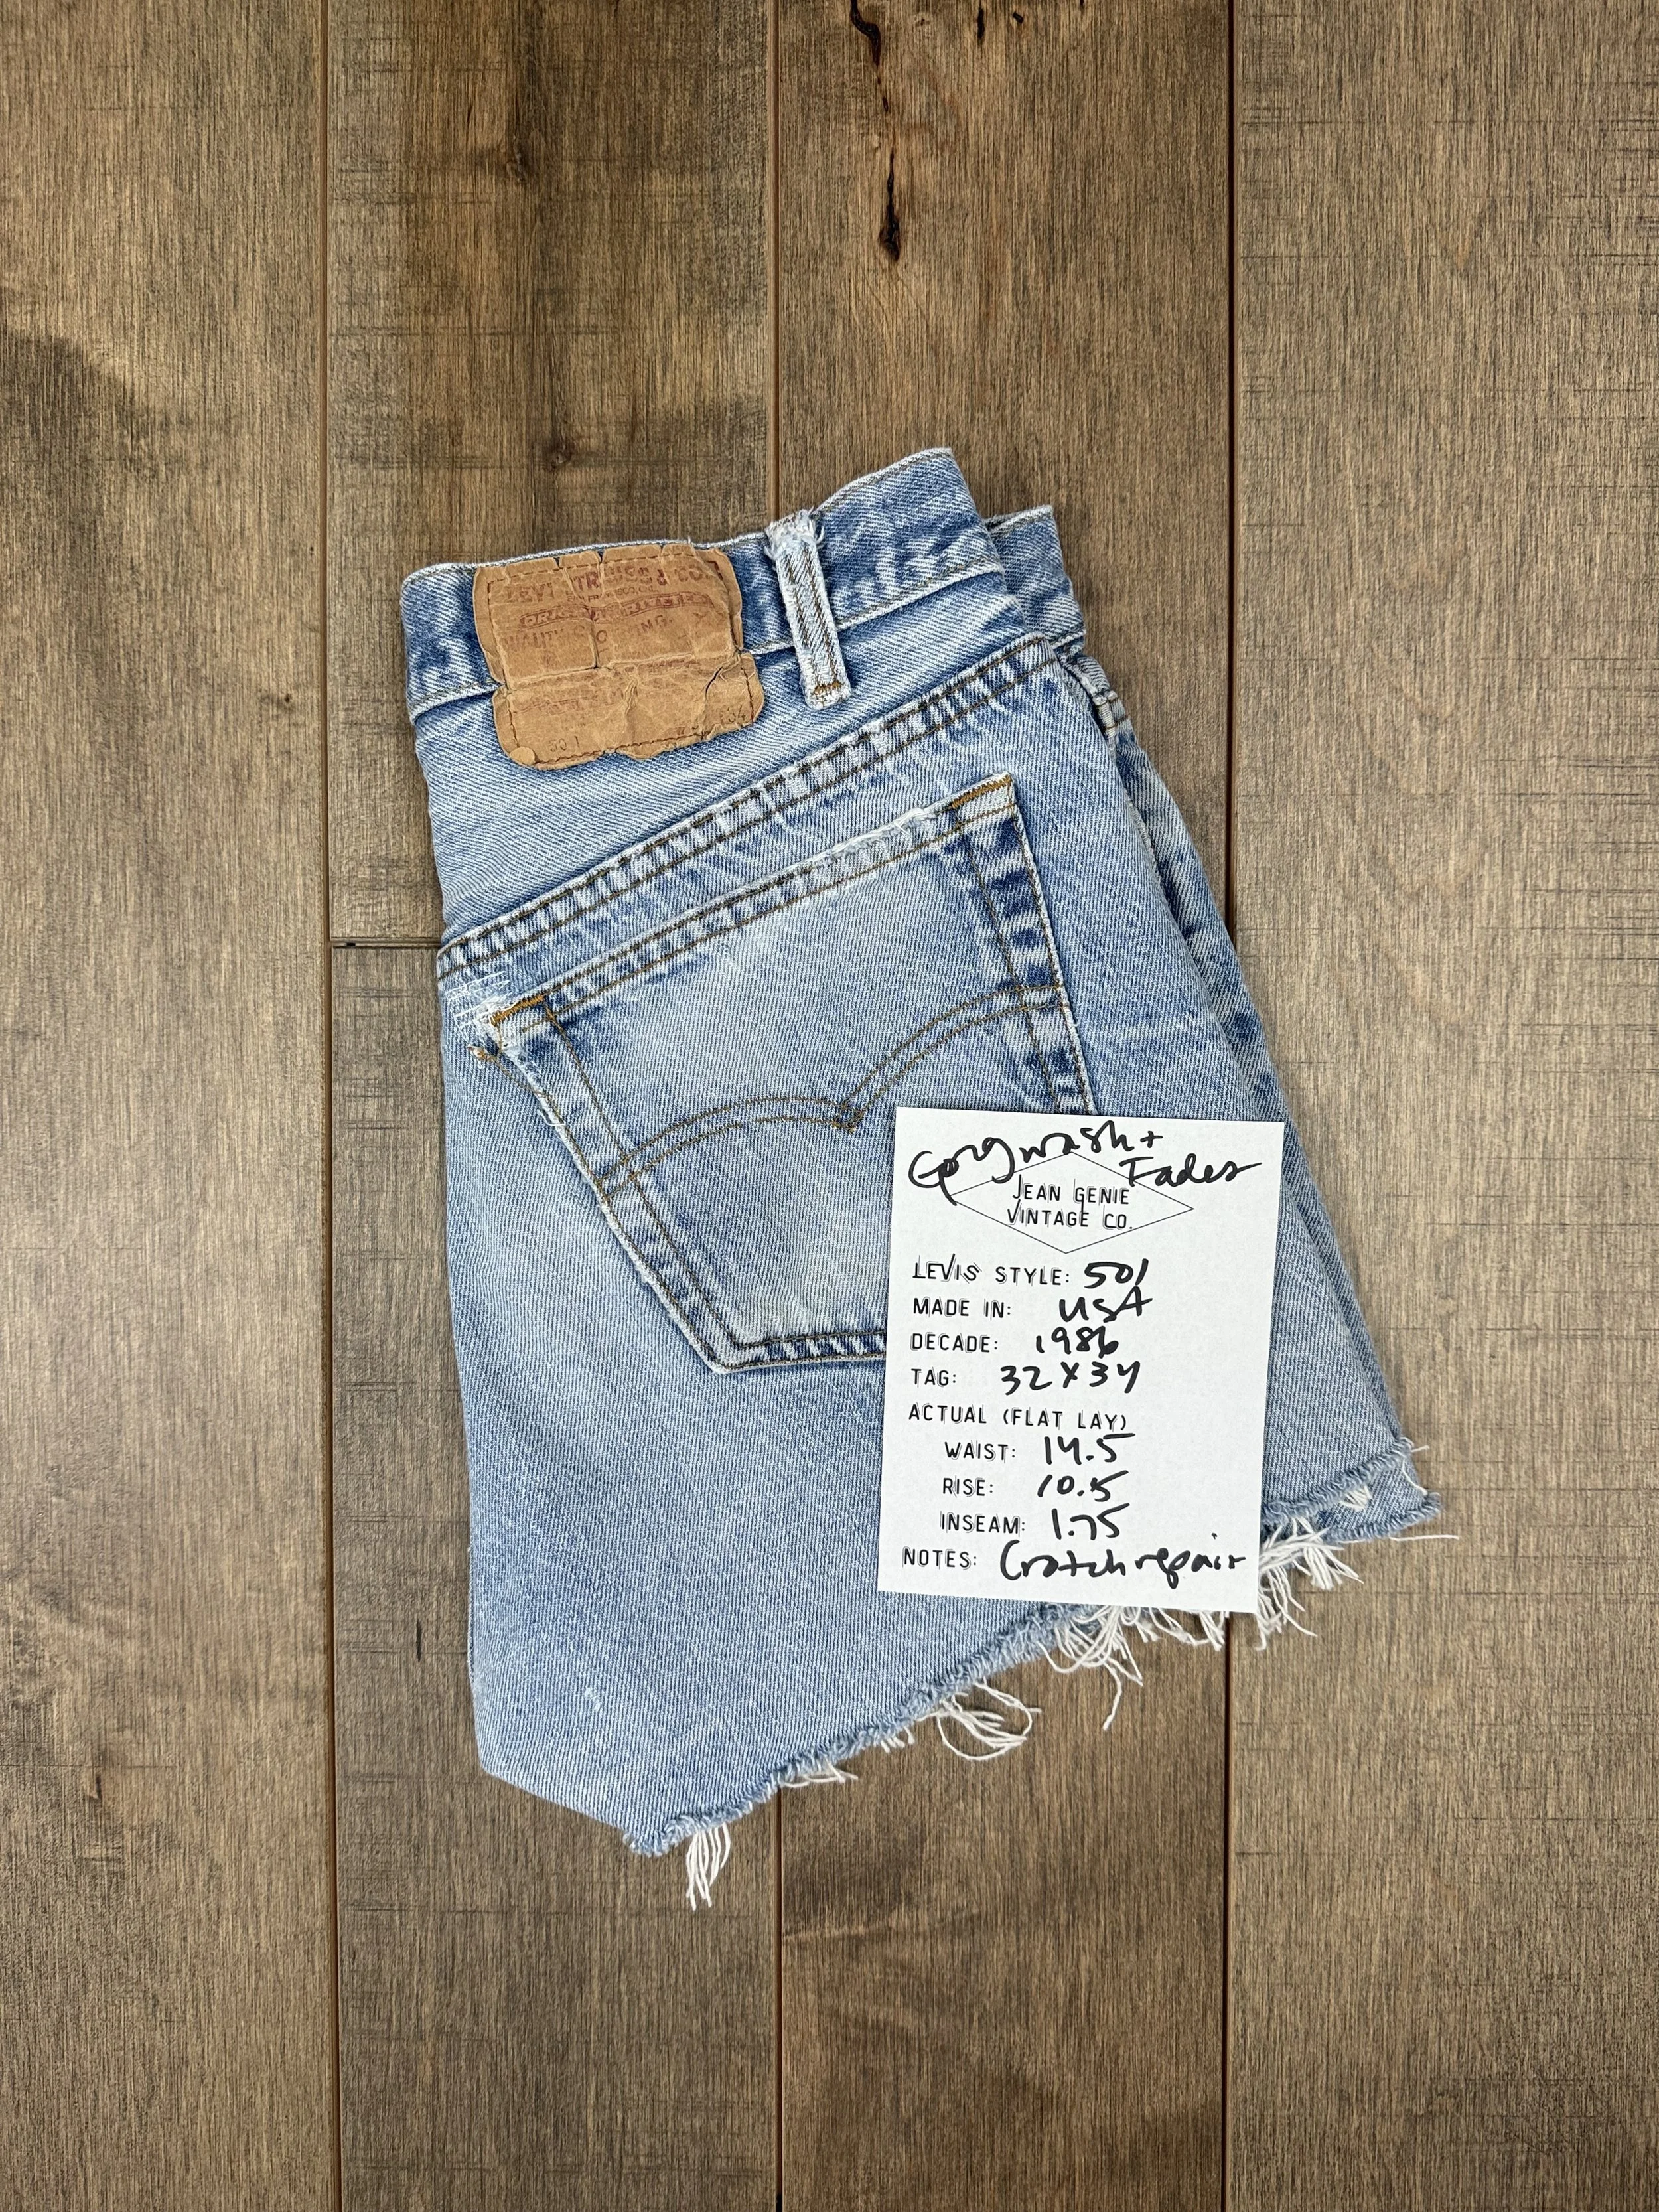 LEVI STRAUSS & CO.
QUALITY CLOTHING
501
Gorg wash +
Fades
JEAN GENIE
VINTAGE CO.
LEVIS STYLE: 501
MADE IN: USA
DECADE: 1986
TAG: 32 X 34
ACTUAL (FLAT LAY)
WAIST: 14.5
RISE: 10.5
INSEAM: 1.75
NOTES: Crotch repair